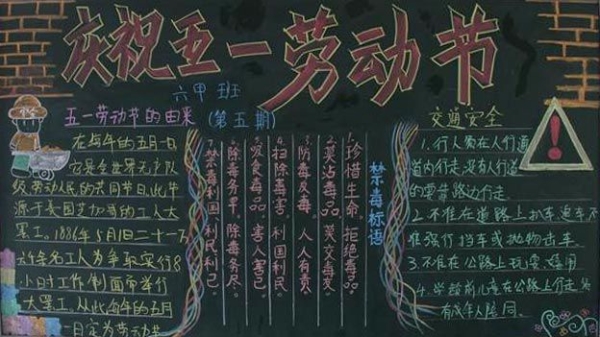 庆祝五一劳动节
六甲班
(第五期)
五一劳动节的由来
在每年的五月一日
它是全世界无产队
级、劳动人民的共同节日,此节
源于美国芝加哥的工人大
罢工。1886年5月1日二十一万
六千名工人为争取实行8
小时工作制而举行
大罢工,从此每年的五月
一日定为劳动节
禁毒标语
1.珍惜生命,拒绝毒品。
2.莫沾毒品,莫交毒友。
3.防毒反毒,人人有责。
4.扫除毒害,利国利民。
5.吸食毒品,害人害己。
6.除毒务早,除毒务尽。
7.禁毒利国,利民利己。
交通安全
1.行人须在人行道
内行走,没有人行道
的要靠路边行走。
2.不准在道路上扒车、追车,不
准强行拦车或抛物击车。
3.不准在公路上玩耍、嬉闹
4.学龄前儿童在公路上行走
有成年人陪同。